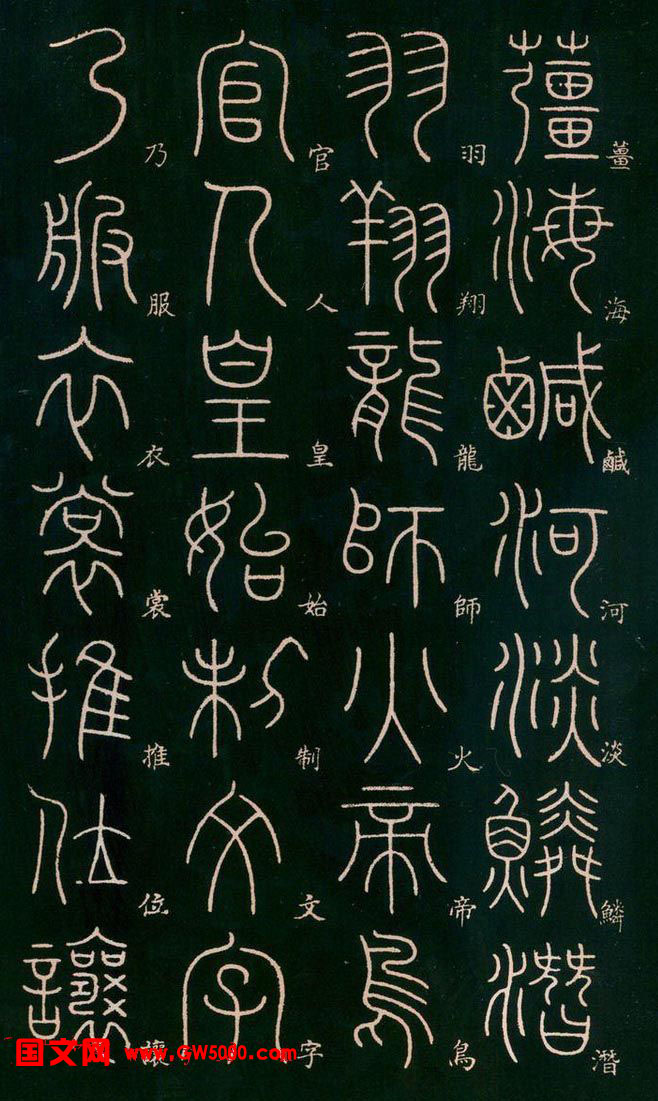 薑海鹹河淡鱗潛
羽翔龍師火帝鳥
官人皇始制文字
乃服衣裳推位讓
国文网 www.GW5000.com